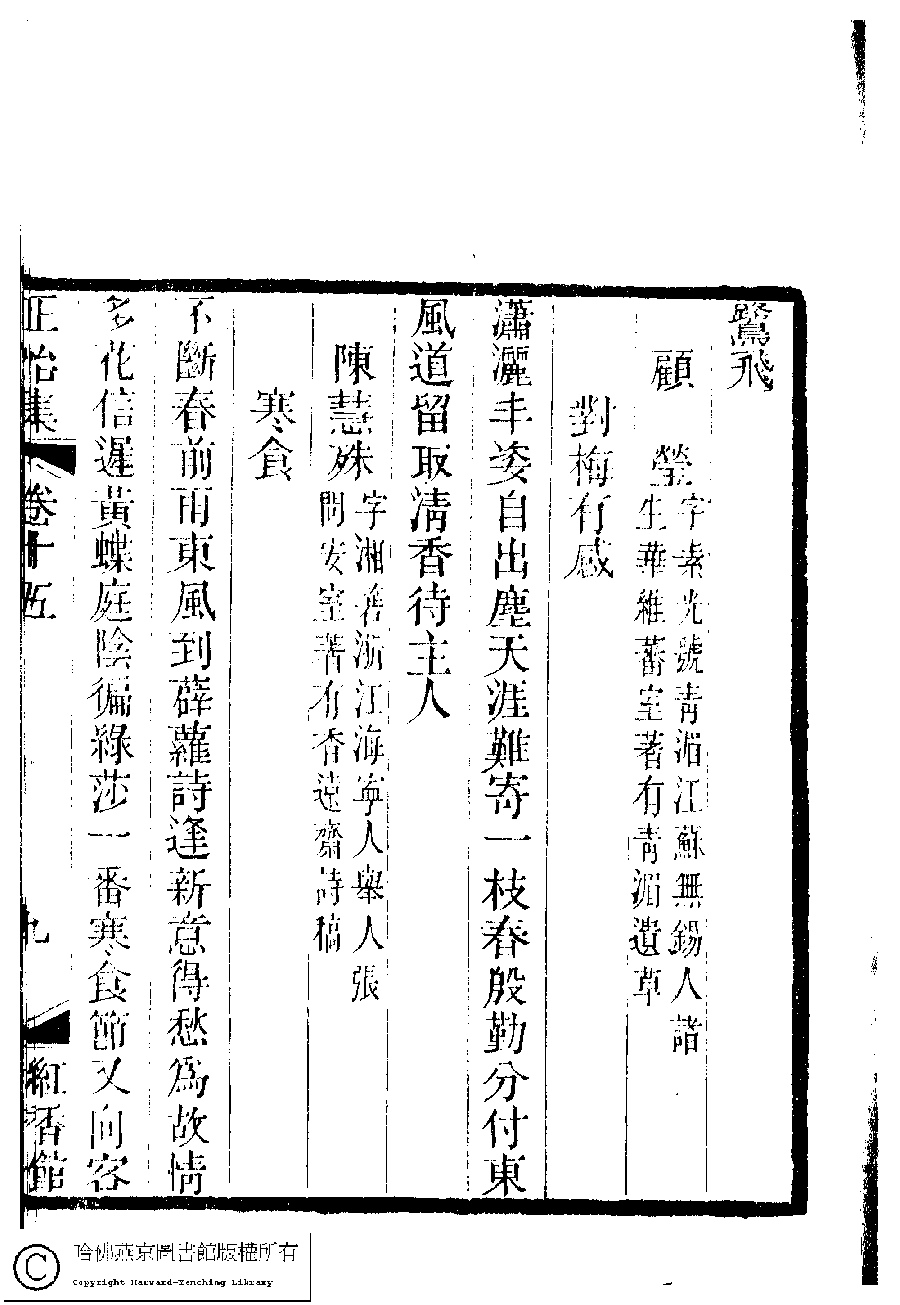 鷺飛
顧瑩
字素光號青湄江蘇無錫人諸
生華維蕃室著有青湄遺草
對梅有感
瀟灑丰姿自出塵天涯難寄一枝春殷勤分付東
風道留取清香待主人
陳慧殊
字湘箬浙江海寧人舉人張
問安室著有香遠齋詩稿
寒食
不斷春前雨東風到薜蘿詩逢新意得愁爲故情
多花信遲黃蝶庭陰徧綠莎一番寒食節又向客
正始集 卷十五 九 紅香館
哈佛燕京圖書館版權所有
Copyright Harvard-Yenching Library